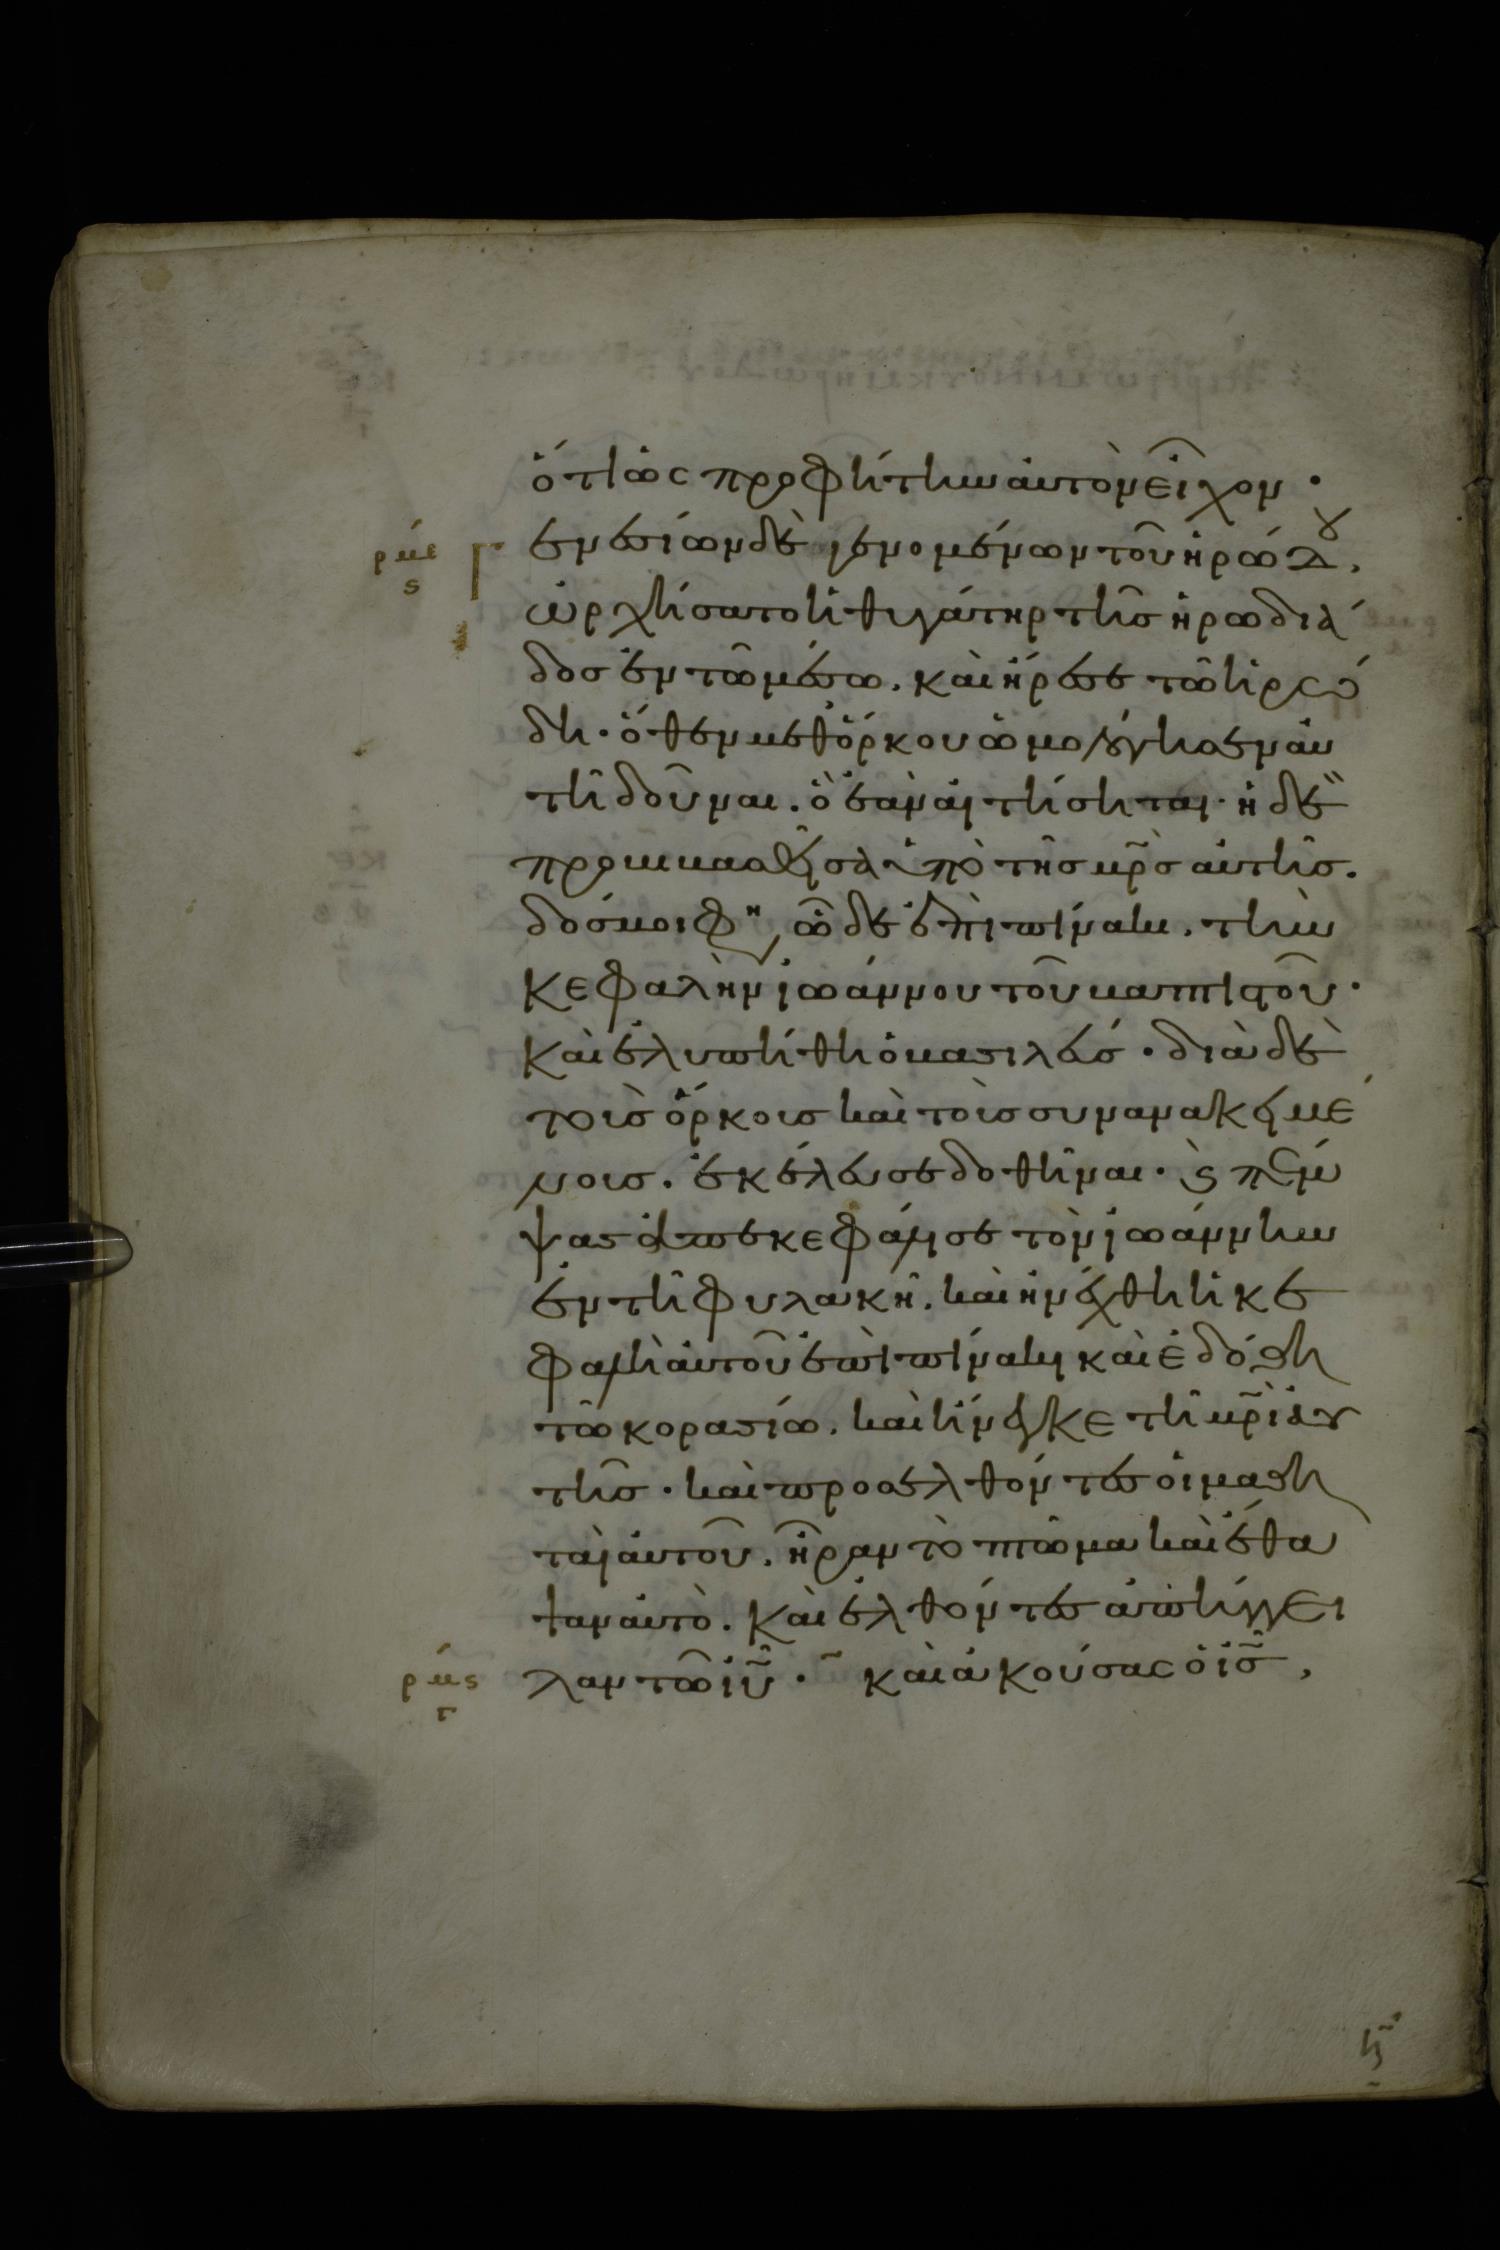 ὅτι ὡς προφήτην αὐτὸν εἶχον·
ρμε γενεσίων δὲ γενομένων τοῦ ἡρώδου,
ς
ὠρχήσατο ἡ θυγάτηρ τῆς ἡρωδιά
δος ἐν τῶ μέσω. καὶ ἤρεσε τῶ ἡρώ
δη· ὅθεν μεθ ὅρκου ὡμολόγησεν αυ
τῆ δοῦναι. ὃ ἐὰν αἰτήσηται· ἡ δὲ
προβιβασθεῖσα ὑπὸ τῆς μρ̅ς αὐτῆς.
δόσ μοι φη, ὧδε ἐπὶ πίνακι. τὴν
κεφαλὴν ἰωάννου τοῦ βαπτιστοῦ·
καὶ ἐλυπήθη ὁ βασιλεύς· διὰ δὲ
τοὺς ὅρκους καὶ τοὺς συνανακειμέ
νους. ἐκέλευσε δοθῆναι· ϗ πέμ
ψας ἀπεκεφάλισε τὸν ἰωάννην
ἐν τῆ φυλακῆ. καὶ ἠνέχθη ἡ κε
φαλὴ αὐτοῦ ἐπὶ πίνακι καὶ ἐδόθη
τῶ κορασίω. καὶ ἤνεγκε τῆ μρ̅ὶ αὐ
τῆς· καὶ προσελθόντες οἱ μαθη
ταὶ αὐτοῦ. ἦραν τὸ πτῶμα καὶ ἔθα
ψαν αὐτὸ. καὶ ἐλθόντες ἀπήγγει
ρμς λαν τῶ ἰυ̅· καὶ ἀκούσας ὁ ις̅,